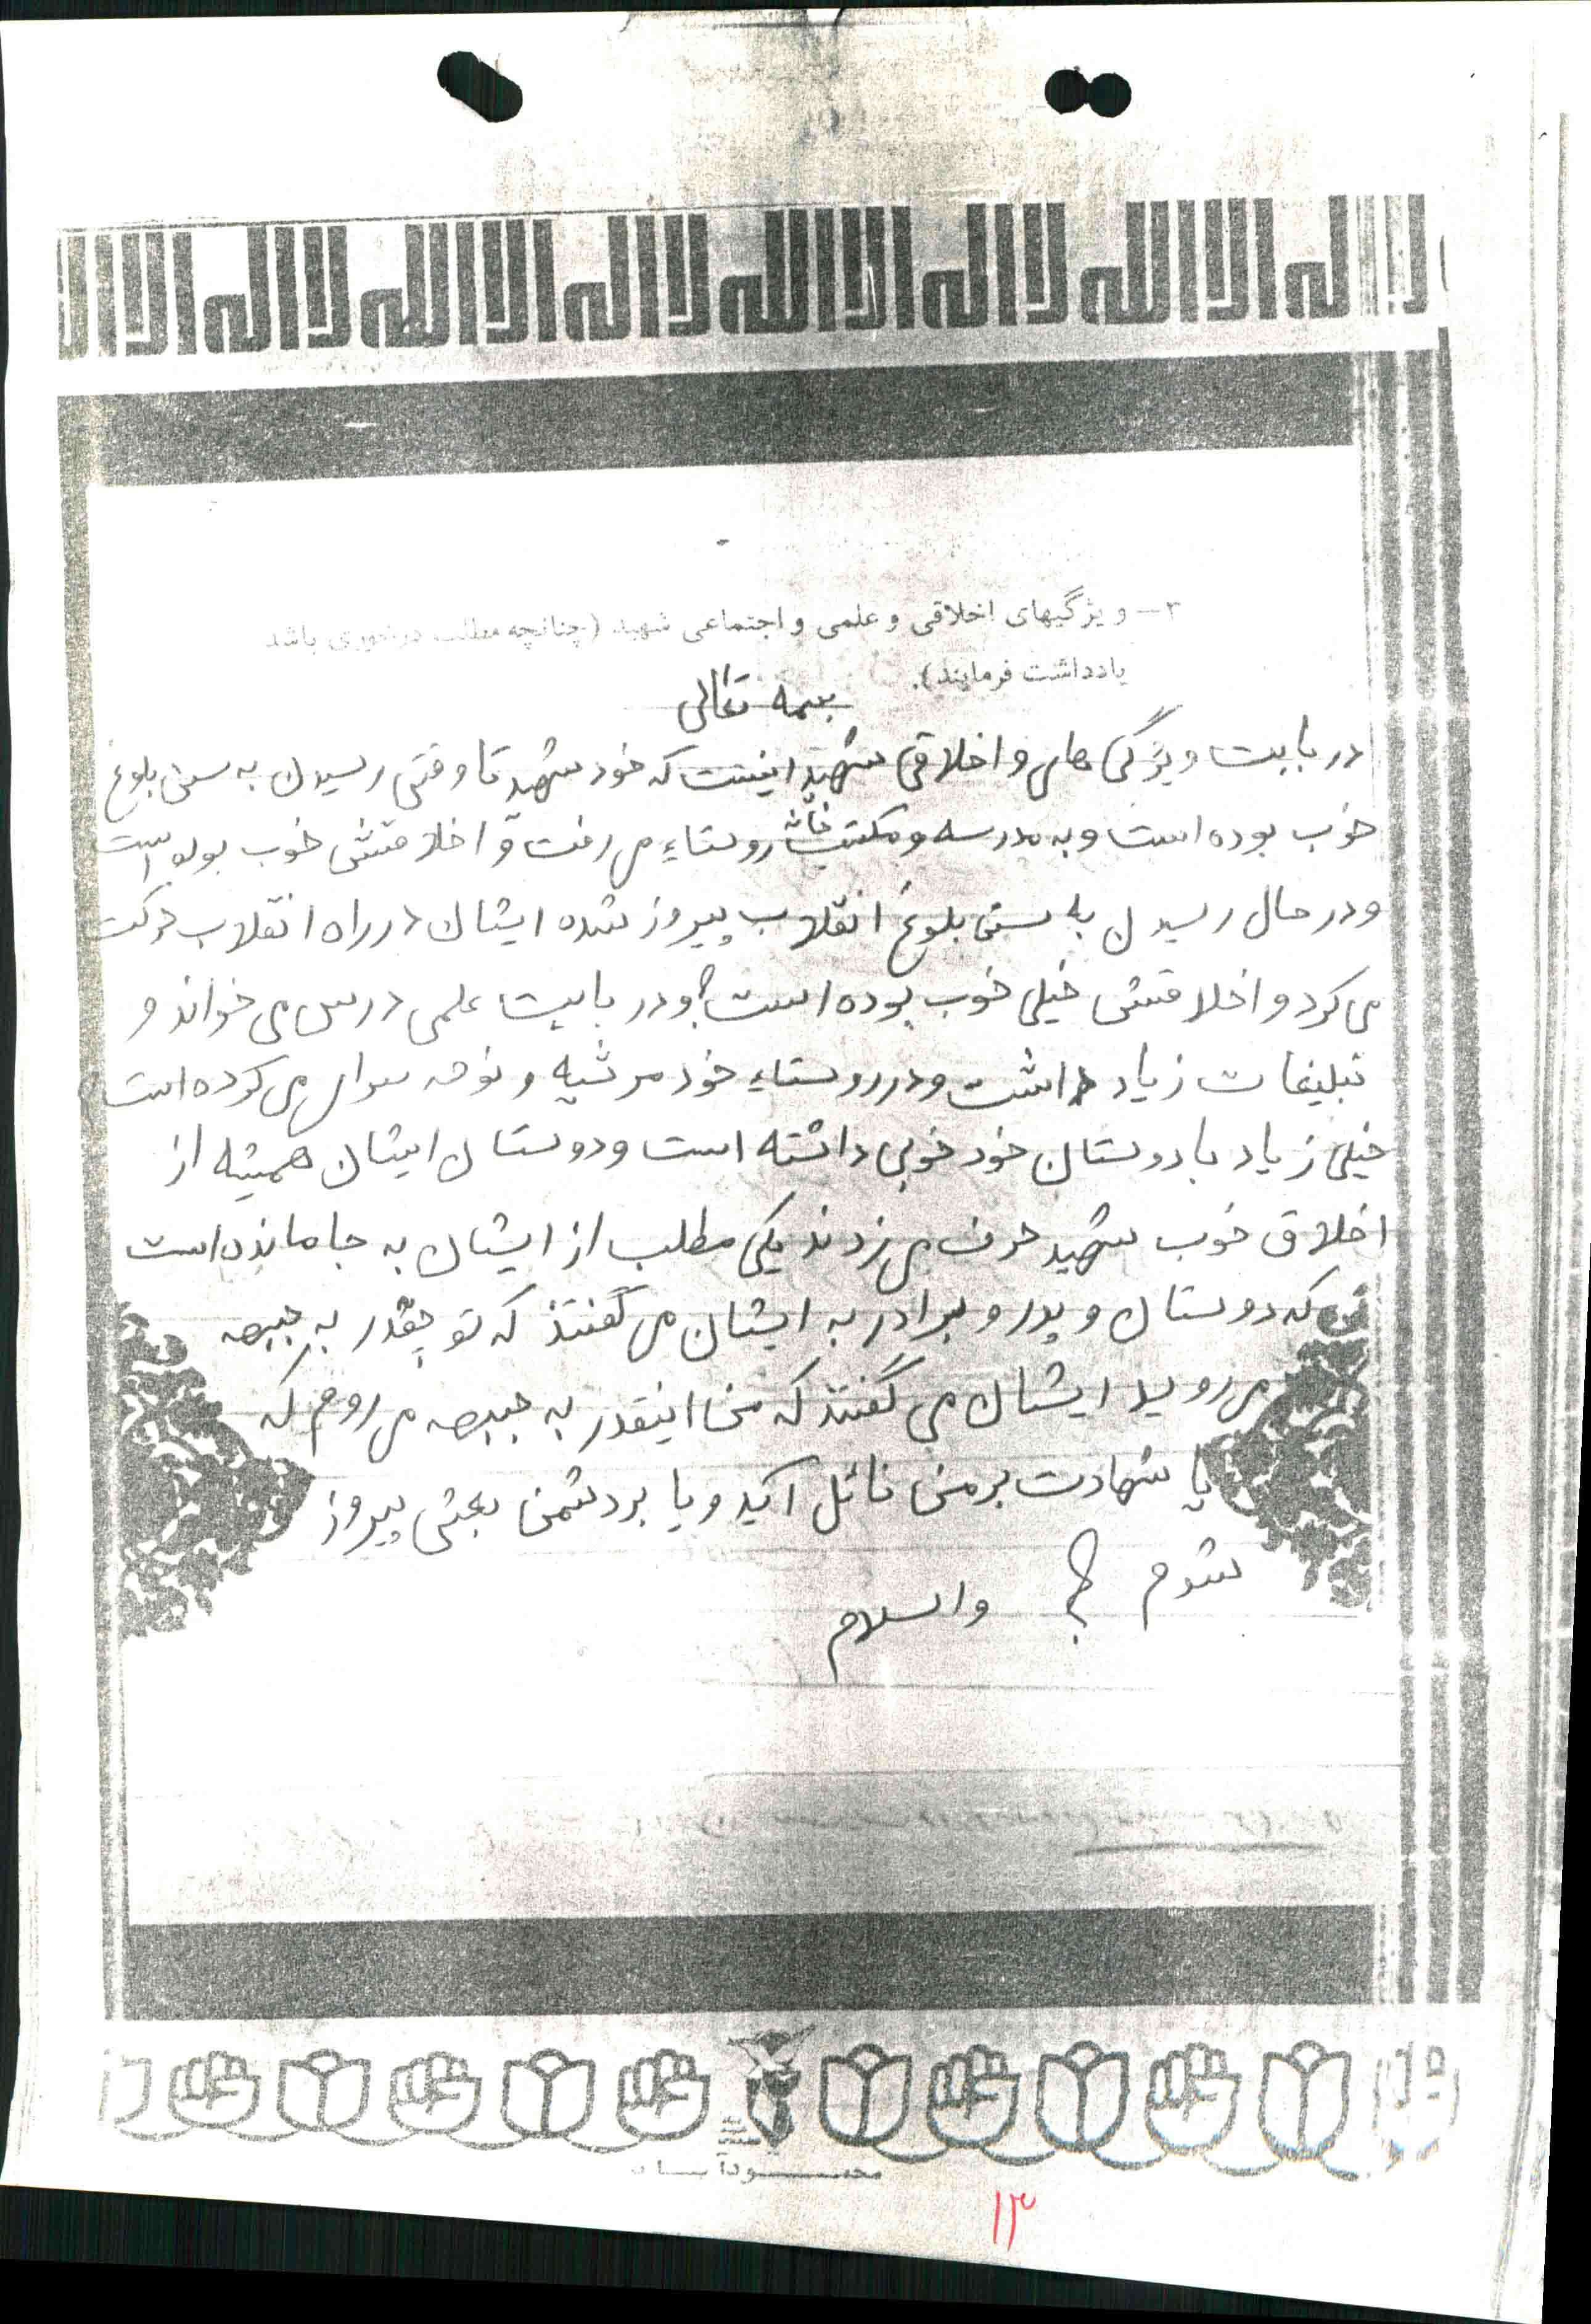 لا اله الا الله لا اله الا الله لا اله الا الله لا اله الا
۳- ویژگیهای اخلاقی و علمی و اجتماعی شهید (چنانچه مطالب درخوری باشد
یادداشت فرمایند).
بسمه تعالی
در بابیت ویژگی های و اخلاقی شهید اینست که خود شهید تا وقتی رسیدن به سن بلوغ
خوب بوده است و به مدرسه و مکتب خانه روستاء می رفت و اخلاقش خوب بوده است
و در حال رسیدن به سن بلوغ انقلاب پیروز شده ایشان در راه انقلاب حرکت
می کرد و اخلاقش خیلی خوب بوده است و در بابیت علمی درس می خواند و
تبلیغات زیاد داشت و در روستاء خود مرثیه و نوحه می کرده است
خیلی زیاد با دوستان خود خوبی داشته است و دوستان ایشان همیشه از
اخلاق خوب شهید حرف می زدند یکی مطلب از ایشان به جا مانده است
که دوستان و پدر و برادر به ایشان می گفتند که تو چقدر به جبهه
می روید ایشان می گفتند که من اینقدر به جبهه می روم که
یا شهادت بر من نائل آید و یا بر دشمن بعثی پیروز
شوم والسلام
محمودآباد
۱۳